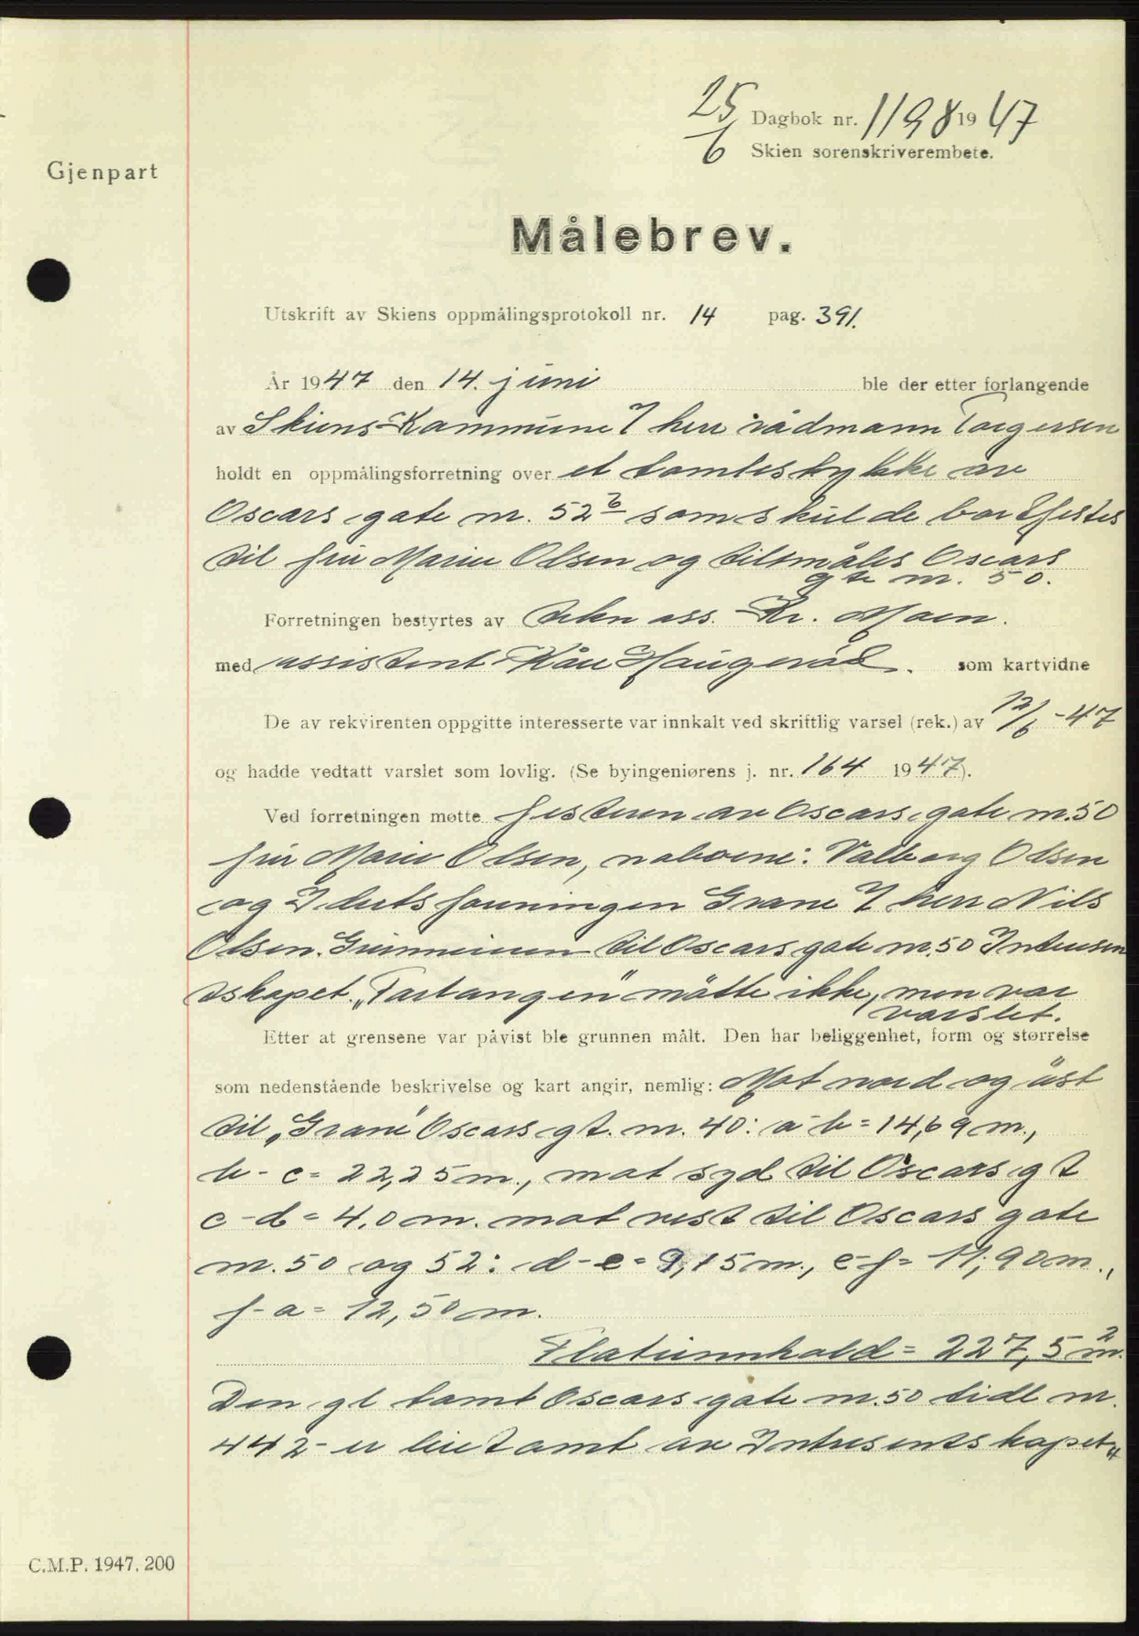 25/6 Dagbok nr. 1198 1947
Skien sorenskriverembete.
Gjenpart
Målebrev.
Utskrift av Skiens oppmålingsprotokoll nr. 14 pag. 391.
År 1947 den 14. juni ble der etter forlangende
av Skiens Kommune v/ herr rådmann Torgersen
holdt en oppmålingsforretning over et tomtestykke av
Oscars gate nr. 52b som skulde bortfestes
til fru Marie Olsen og tilsmåles Oscars
gte nr. 50.
Forretningen bestyrtes av tekn ass. Kr. Moen.
med assistent Kåre Haugerød. som kartvidne
De av rekvirenten oppgitte interesserte var innkalt ved skriftlig varsel (rek.) av 12/6 -47
og hadde vedtatt varslet som lovlig. (Se byingeniørens j. nr. 164 1947).
Ved forretningen møtte festeren av Oscars gate nr. 50
fru Marie Olsen, naboene: Valborg Olsen
og Idretsforeningen Grane v/ herr Nils
Olsen. Grunneieren til Oscars gate nr. 50 Interessen
tskapet „Tartangen" møtte ikke, men var
varslet.
Etter at grensene var påvist ble grunnen målt. Den har beliggenhet, form og størrelse
som nedenstående beskrivelse og kart angir, nemlig: Mot nord og øst
til „Grane" Oscars gt. nr. 40: a-b = 14,69 m.,
b - c = 22,25 m., mot syd til Oscars gt
c - d = 4.0 m. mot vest til Oscars gate
nr. 50 og 52: d - e = 9,15 m., e-f = 11,90 m.,
f - a = 12,50 m.
Flateinnhold = 227,5 m².
Den gl tomt Oscars gate nr. 50 tidl nr.
442 - er leietomt av Interessentskapet „
C.M.P. 1947. 200